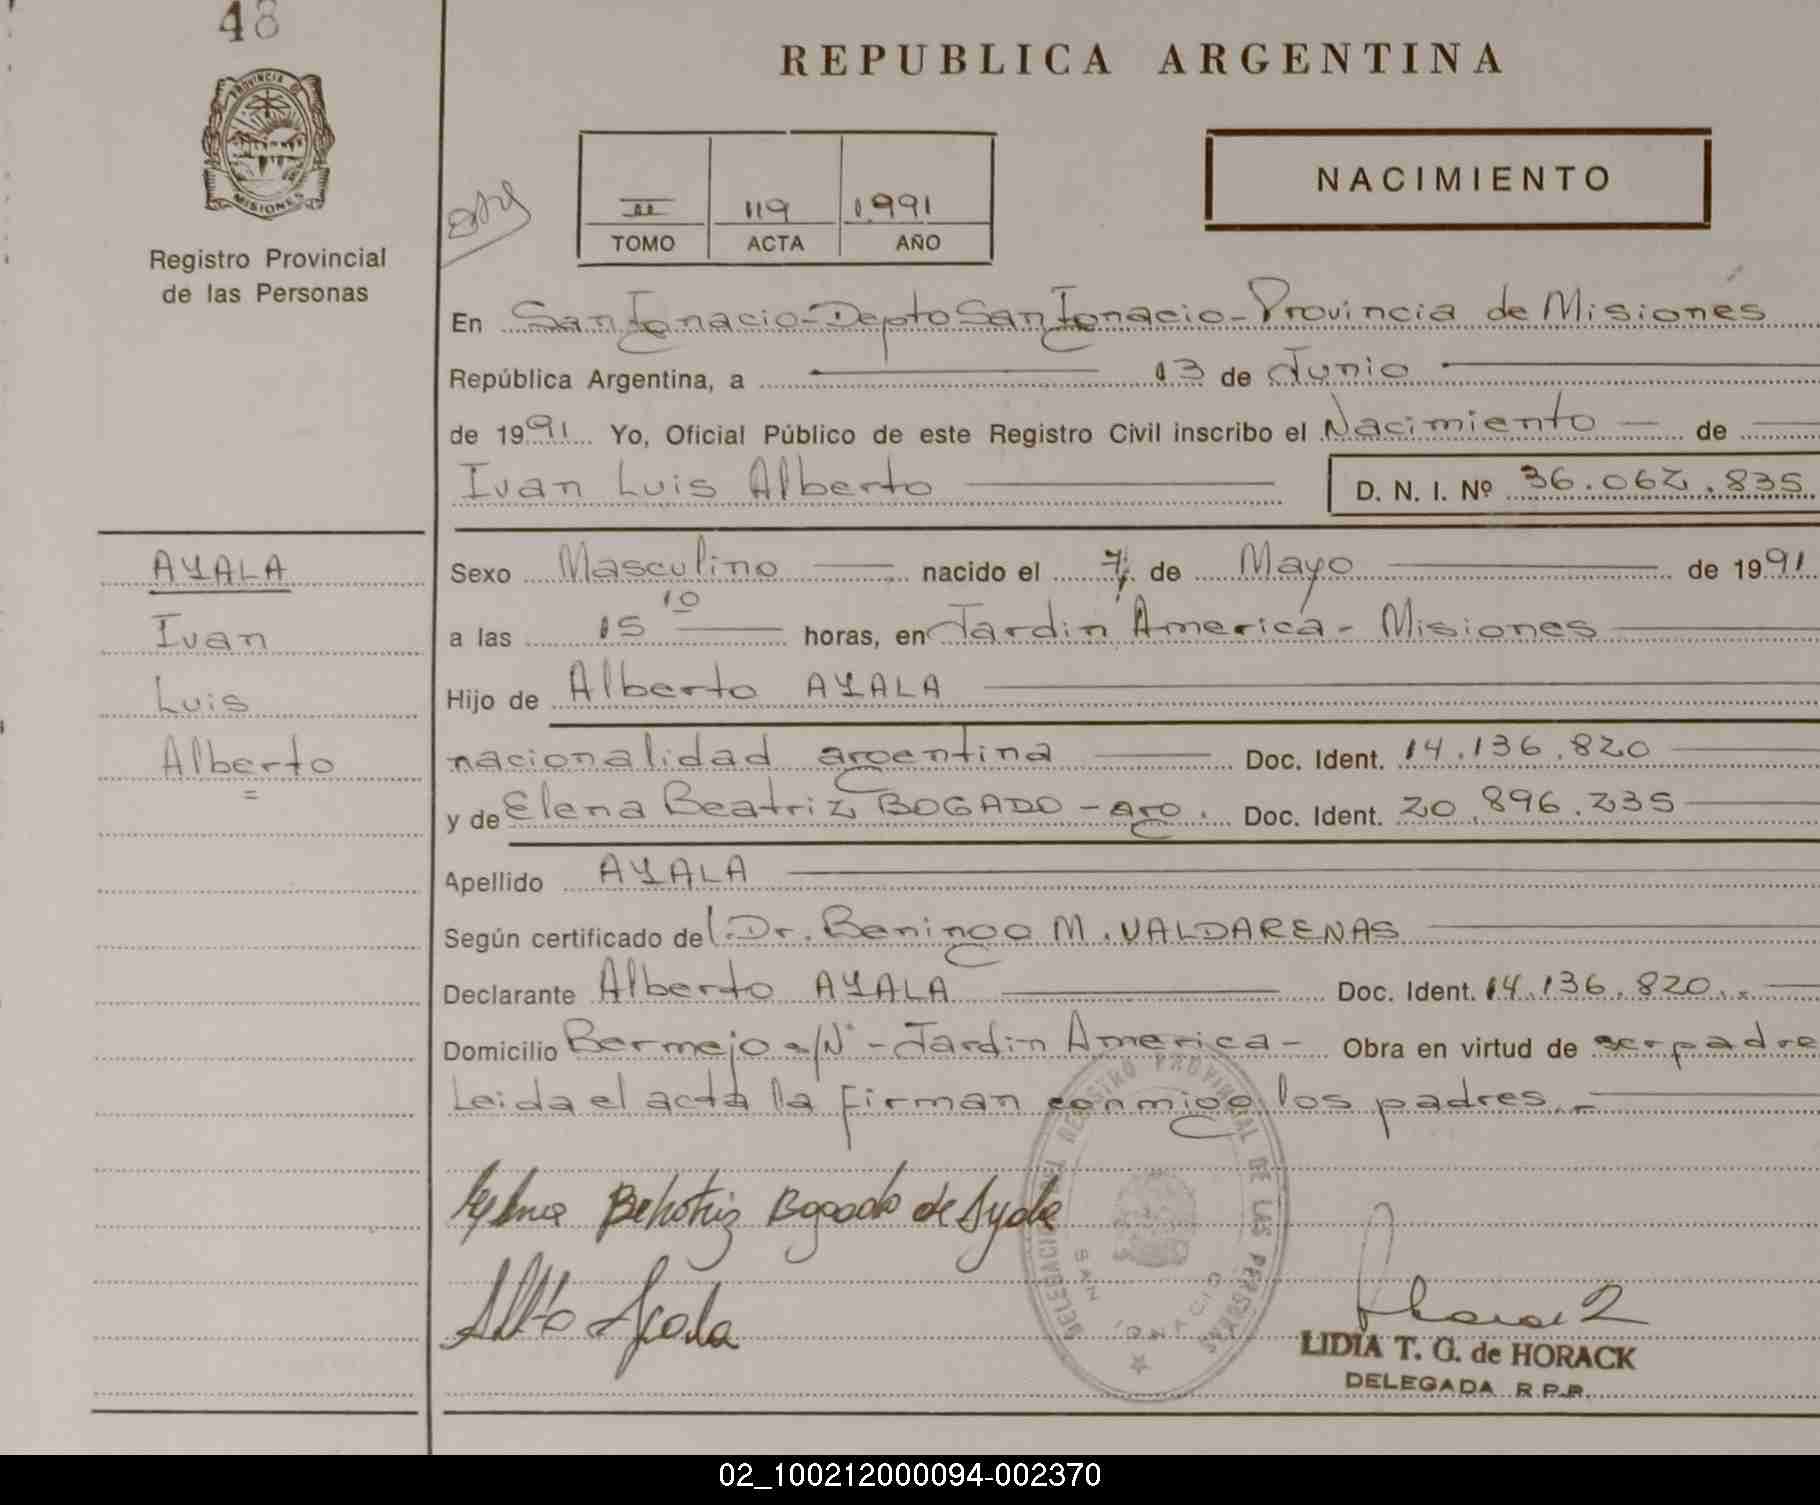 48
PROVINCIA DE
MISIONES
Registro Provincial
de las Personas
REPUBLICA ARGENTINA
II 119 1991
TOMO ACTA AÑO
NACIMIENTO
En San Ignacio-Depto San Ignacio-Provincia de Misiones
República Argentina, a 13 de Junio
de 1991 Yo, Oficial Público de este Registro Civil inscribo el Nacimiento de
Ivan Luis Alberto D. N. I. Nº 36.062.835
AYALA
Ivan
Luis
Alberto
Sexo Masculino nacido el 7 de Mayo de 1991
a las 15 10 horas, en Jardin America - Misiones
Hijo de Alberto AYALA
nacionalidad argentina Doc. Ident. 14.136.820
y de Elena Beatriz BOGADO - arg. Doc. Ident. 20.896.235
Apellido AYALA
Según certificado del Dr. Beningo M. VALDARENAS
Declarante Alberto AYALA Doc. Ident. 14.136.820.
Domicilio Bermejo s/Nº - Jardin America - Obra en virtud de ser padre
Leida el acta la firman conmigo los padres.-
Behotriz Bogado de Ayala
Albto Ayala
DELEGACION DEL REGISTRO PROVINCIAL DE LAS PERSONAS
SAN IGNACIO
LIDIA T. G. de HORACK
DELEGADA R.P.P.
02_100212000094-002370